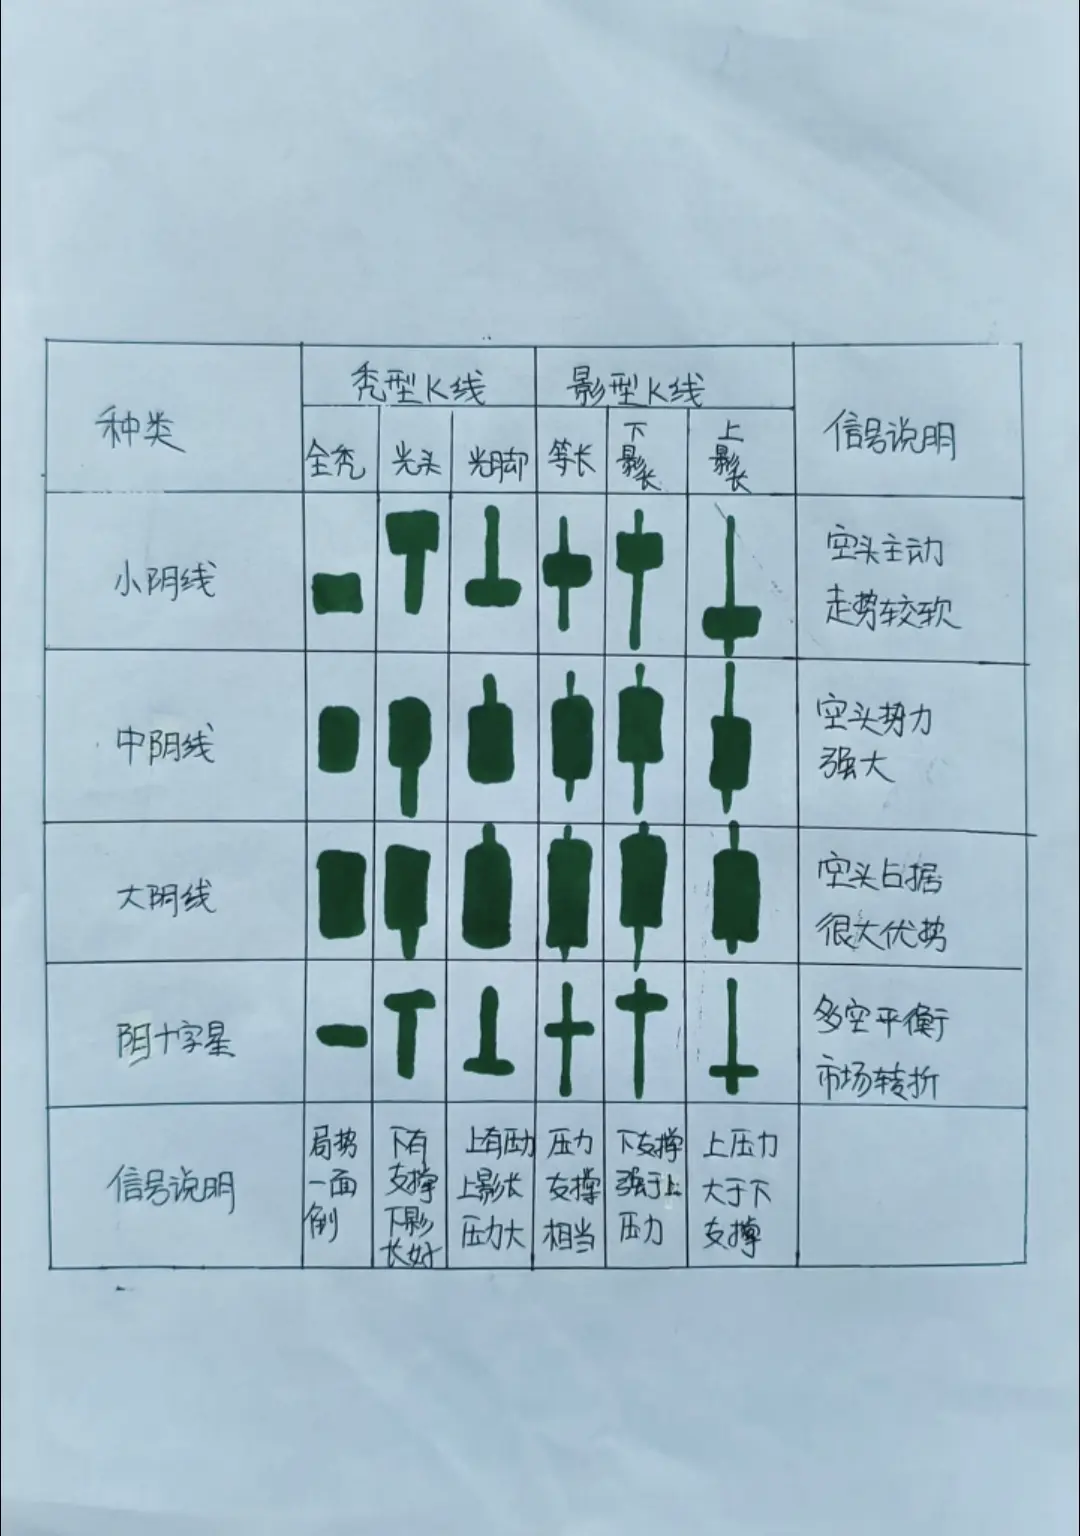 种类
秃型K线
影型K线
信号说明
全秃
光头
光脚
等长
下
影长
上
影长
小阴线
空头主动
走势较软
中阴线
空头势力
强大
大阴线
空头占据
很大优势
阴十字星
多空平衡
市场转折
信号说明
局势
一面
倒
下有
支撑
下影
长好
上有压力
上影长
压力大
压力
支撑
相当
下支撑
强于上
压力
上压力
大于下
支撑